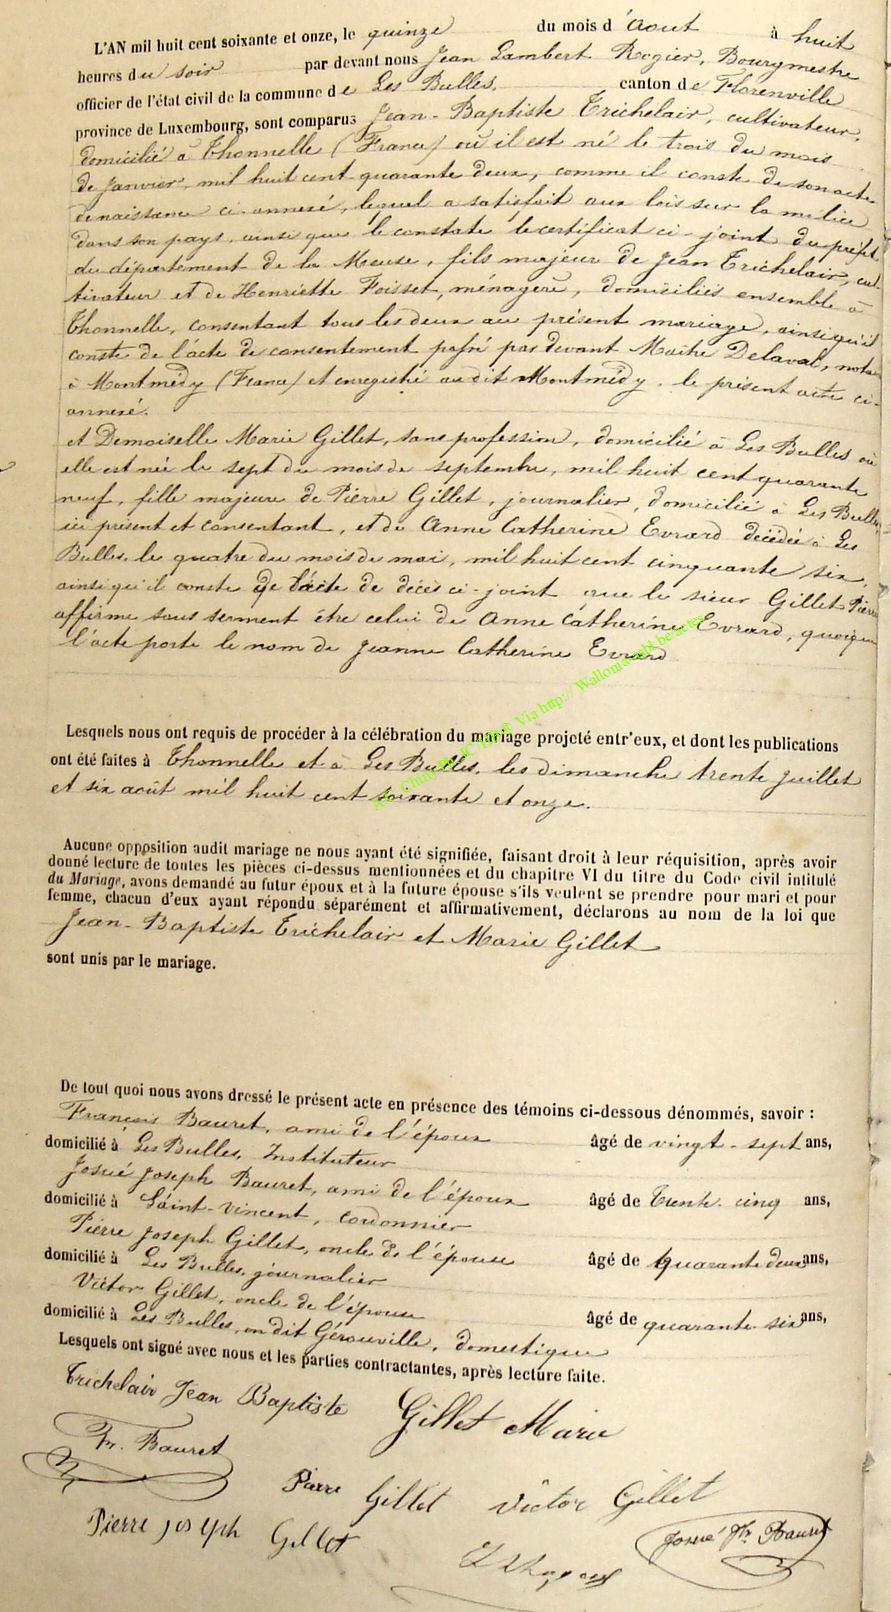 L'AN mil huit cent soixante et onze, le quinze du mois d'Aout à huit
heures du soir par devant nous Jean Lambert Rogier, Bourgmestre
officier de l'état civil de la commune de Les Bulles, canton de Florenville
province de Luxembourg, sont comparus Jean-Baptiste Trichelair, cultivateur,
domicilié à Thonnelle (France) où il est né le trois du mois
de Janvier, mil huit cent quarante deux, comme il conste de son acte
de naissance ci-annexé, lequel a satisfait aux lois sur la milice
dans son pays, ainsi que le constate le certificat ci-joint du préfet
du département de la Meuse, fils majeur de Jean Trichelair, cul-
tivateur et de Henriette Foisset, ménagère, domiciliés ensemble à
Thonnelle, consentant tous les deux au présent mariage, ainsi qu'il
conste de l'acte de consentement passé par devant Maître Delaval, notaire
à Montmédy (France) et enregistré au dit Montmédy, le présent acte ci-
annexé.
et Demoiselle Marie Gillet, sans profession, domicilié à Les Bulles où
elle est née le sept du mois de septembre, mil huit cent quarante
neuf, fille majeure de Pierre Gillet, journalier, domicilié à Les Bulles,
ici présent et consentant, et de Anne Catherine Evrard décédée à Les
Bulles, le quatre du mois de mai, mil huit cent cinquante six,
ainsi qu'il conste de l'acte de décès ci-joint que le sieur Gillet Pierre
affirme sous serment être celui de Anne Catherine Evrard, quoique
l'acte porte le nom de Jeanne Catherine Evrard
Via http://
Lesquels nous ont requis de procéder à la célébration du mariage projeté entr'eux, et dont les publications
ont été faites à Thonnelle et à Les Bulles, les dimanche trente Juillet
et six août mil huit cent soixante et onze.
Aucune opposition audit mariage ne nous ayant été signifiée, faisant droit à leur réquisition, après avoir
donné lecture de toutes les pièces ci-dessus mentionnées et du chapitre VI du titre du Code civil intitulé
du Mariage, avons demandé au futur époux et à la future épouse s'ils veulent se prendre pour mari et pour
femme, chacun d'eux ayant répondu séparément et affirmativement, déclarons au nom de la loi que
Jean-Baptiste Trichelair et Marie Gillet
sont unis par le mariage.
De tout quoi nous avons dressé le présent acte en présence des témoins ci-dessous dénommés, savoir :
François Bauret, ami de l'époux
domicilié à Les Bulles, Instituteur âgé de vingt-sept ans,
Josué Joseph Bauret, ami de l'époux
domicilié à Saint-Vincent, cordonnier âgé de Trente-cinq ans,
Pierre Joseph Gillet, oncle de l'épouse
domicilié à Les Bulles, journalier âgé de quarante deux ans,
Victor Gillet, oncle de l'épouse
domicilié à Les Bulles, on dit Gérouville, domestique âgé de quarante-six ans,
Lesquels ont signé avec nous et les parties contractantes, après lecture faite.
Trichelair Jean Baptiste Gillet Marie
Fr. Bauret
Pierre Gillet Victor Gillet
Pierre joseph Gillet Josué Jh Bauret